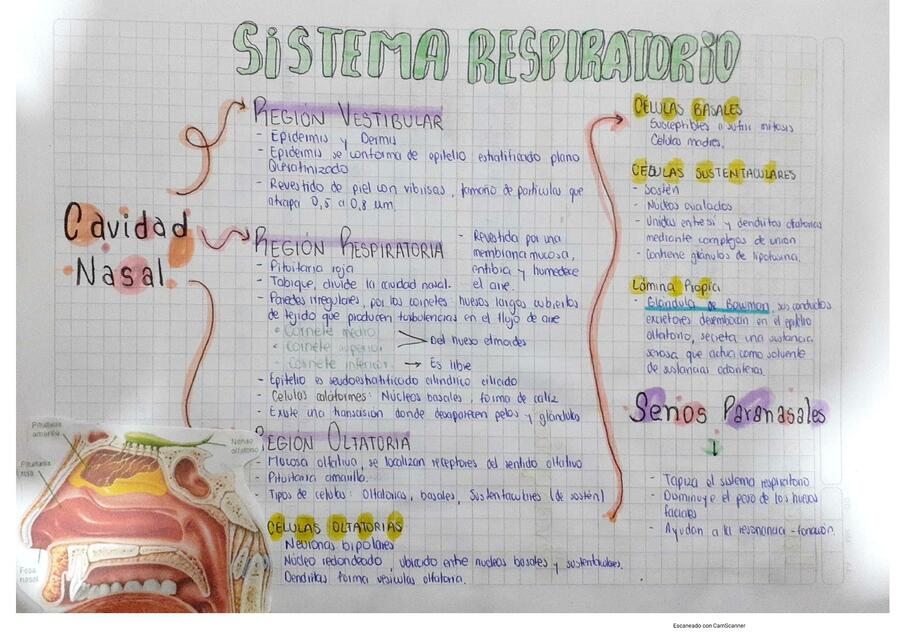 SISTEMA RESPIRATORIO
Cavidad
Nasal
REGIÓN VESTIBULAR
- Epidermis y Dermis
- Epidermis se conforma de epitelio estratificado plano
Queratinizado
- Revestido de piel con vibrisas, tamaño de particulas que
atrapa 0,5 a 0,8 µm.
REGIÓN RESPIRATORIA
- Revestida por una
membrana mucosa,
entibia y humedece
el aire.
- Pituitaria roja
- Tabique, divide la cavidad nasal.
- Paredes irregulares, por los cornetes: huesos largos cubiertos
de tejido que producen turbulencias en el flujo de aire
• Cornete medio
• Cornete superior
Del hueso etmoides
• Cornete inferior → Es libre
- Epitelio es seudoestratificado cilindrico ciliado
- Celulas caliciformes: Núcleos basales, forma de caliz
- Existe una transision donde desaparecen pelos y glándulas
REGIÓN OLFATORIA
- Mucosa olfativo, se localizan receptores del sentido olfativo
- Pituitaria amarilla.
- Tipos de celulas: olfatorias, basales, sustentaculares (de sostén)
CÉLULAS OLFATORIAS
Neuronas bipolares
Núcleo redondeado, ubicado entre nucleos basales y sustentaculares.
Dendritas forma vesículas olfatoria.
CÉLULAS BASALES
Susceptibles a sufrir mitosis
Celulas madres.
CÉLULAS SUSTENTACULARES
- Sostén
- Nucleos ovalados
- Unidas entre si y dendritas olfatorias
mediante complejos de union
- Contiene glánulos de lipofucina.
Lámina Propia
- Glándula de Bowman, sus conductos
excretores desembocan en el epitelio
olfatorio, secreta una sustancia
serosa que actua como solvente
de sustancias odoríferas.
Senos Paranasales
↓
- Tapiza el sistema respiratorio
- Disminuye el peso de los huesos
faciales
- Ayudan a la resonancia - fonación.
Pituitaria
amarilla
Nervio
olfatorio
Pituitaria
roja
Fosa
nasal
Escaneado con CamScanner